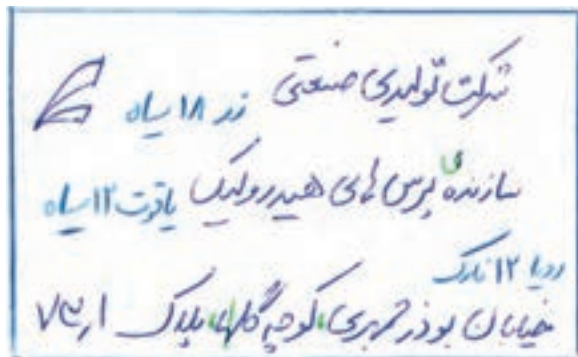 شرکت تولیدی صنعتی زر ۱۸ سیاه
سازنده‌ی پرس‌های هیدرولیک یاقوت ۱۲ سیاه
رویا ۱۲ نازک
خیابان بوذرجمهری، کوچه گلها، پلاک ۷۳٫۱